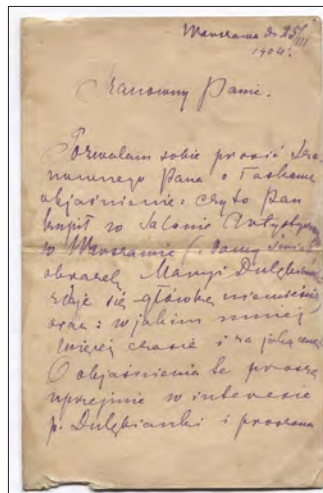 Warszawa d. 25/III
1904.
Szanowny Panie.
Pozwalam sobie prosić Sza-
nownego Pana o łaskawe
objaśnienie: czy to Pan
kupił w Salonie Artystycznym
w Warszawie (
obrazek Maryi Dulębianki
zdaje się główkę
oraz: w jakim mniej
więcej czasie i za jaką cenę
O objaśnienia te proszę
uprzejmie w interesie
p. Dulębianki i proszona